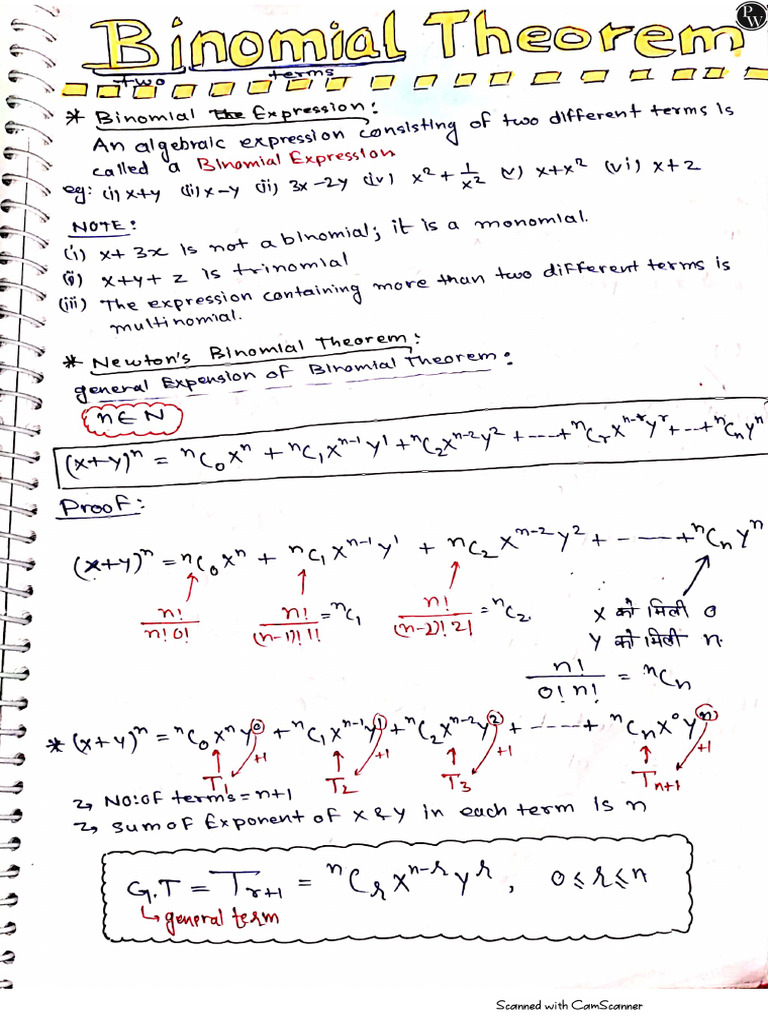 PW
Binomial Theorem
two terms
* Binomial the Expression:
An algebraic expression consisting of two different terms is
called a Binomial Expression
eg: (i) x+y (ii) x-y (ii) 3x-2y (iv) x² + 1/x² (v) x+x² (vi) x+z
NOTE:
(i) x+3x is not a binomial; it is a monomial.
(ii) x+y+z is trinomial
(iii) The expression containing more than two different terms is
multinomial.
* Newton's Binomial Theorem:
general Expension of Binomial Theorem:
n∈N
(x+y)ⁿ = ⁿC₀xⁿ + ⁿC₁xⁿ⁻¹y¹ + ⁿC₂xⁿ⁻²y² + ---- + ⁿCᵣxⁿ⁻ʳyʳ + --- + ⁿCₙyⁿ
Proof:
(x+y)ⁿ = ⁿC₀xⁿ + ⁿC₁xⁿ⁻¹y¹ + ⁿC₂xⁿ⁻²y² + - ---- + ⁿCₙyⁿ
n!/n!0! n!/(n-1)!1! = ⁿC₁ n!/(n-2)!2! = ⁿC₂
x को मिली 0
y को मिली n.
n!/0!n! = ⁿCₙ
* (x+y)ⁿ = ⁿC₀xⁿy⁰ + ⁿC₁xⁿ⁻¹y¹ + ⁿC₂xⁿ⁻²y² + ----- + ⁿCₙx⁰yⁿ
+1 +1 +1 +1
T₁ T₂ T₃ Tₙ₊₁
No: of terms = n+1
Sum of Exponent of x & y in each term is n
G.T = Tᵣ₊₁ = ⁿCᵣxⁿ⁻ʳyʳ, 0⩽r⩽n
general term
Scanned with CamScanner